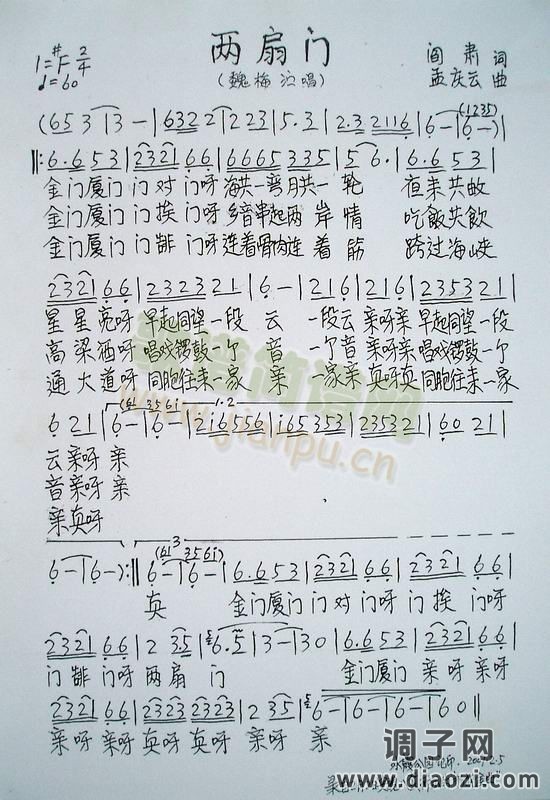 两扇门
(魏梅泣唱)
阎肃 词
孟庆云 曲
1=#F 2/4
♩=60
(653|3-|6322|223|5.3|2.32116|6-|6-)|
(1235)
‖:6.653|232166|6665335|56.|6.653|
金门厦门门对门呀海共一弯月共一轮 夜来共
金门厦门门挨门呀乡音串起两岸情 吃飯共飲
金门厦门门排门呀连着骨肉连着筋 跨过海峡
232166|232321|6-|216|216|235321|
星星亮呀早起同望一段云 一段云亲呀亲早起同望一段
高梁酒呀唱戏锣鼓一个音 一个音亲呀亲唱戏锣鼓一个
通大道呀同胞往来一家亲 一家亲真呀真同胞往来一家
(61 3561 1.2
621|6-|6-|2i6556|i65353|235321|6021|
云亲呀亲
音亲呀亲
亲真呀
3
(61 3561)
6-|6-):‖6-|6-|6.653|232166|232166|
真 金门厦门门对门呀门挨门呀
232166|235|6.5|3-|30|6.653|232166|
门排门呀两扇门 金门厦门亲呀亲呀
232166|2323 2323|235|6-|6-|6-|60‖
亲呀亲呀真呀真呀亲呀亲
简谱网
www.jianpu.cn
调子网
www.diaozi.com